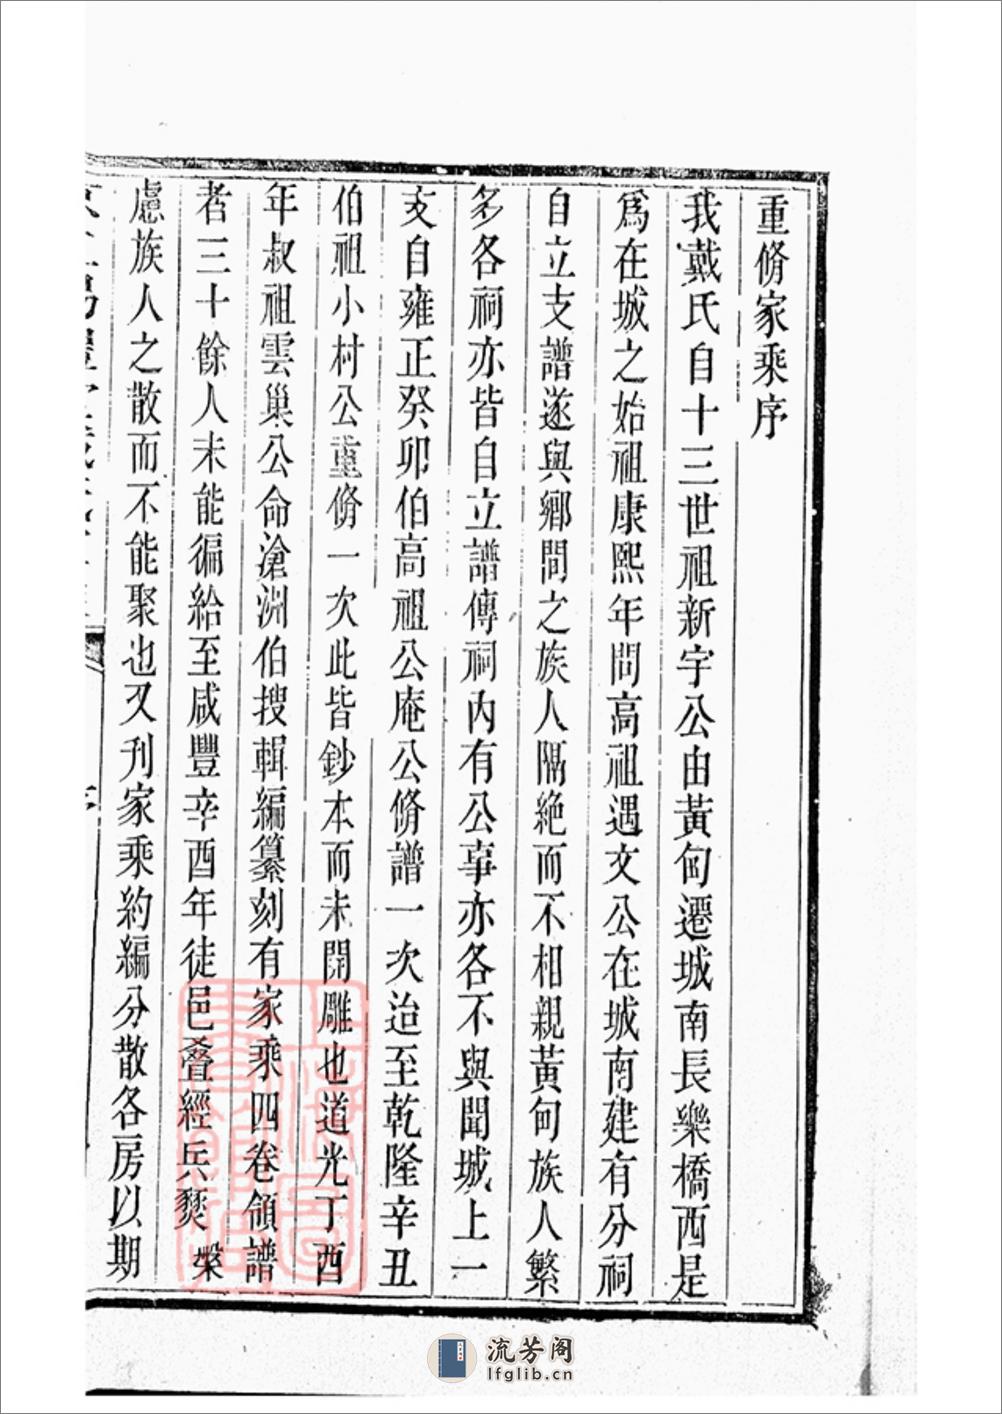 重脩家乘序
我戴氏自十三世祖新宇公由黃甸遷城南長樂橋西是
爲在城之始祖康熙年間高祖遇文公在城南建有分祠
自立支譜遂與鄉間之族人隔絶而不相親黃甸族人繁
多各祠亦皆自立譜傳祠內有公事亦各不與聞城上一
支自雍正癸卯伯高祖公庵公脩譜一次迨至乾隆辛丑
伯祖小村公重脩一次此皆鈔本而未開雕也道光丁酉
年叔祖雲巢公命滄洲伯搜輯編纂刻有家乘四卷領譜
者三十餘人未能徧給至咸豐辛酉年徒邑疊經兵燹棨
慮族人之散而不能聚也又刊家乘約編分散各房以期
流芳阁
lfglib.cn